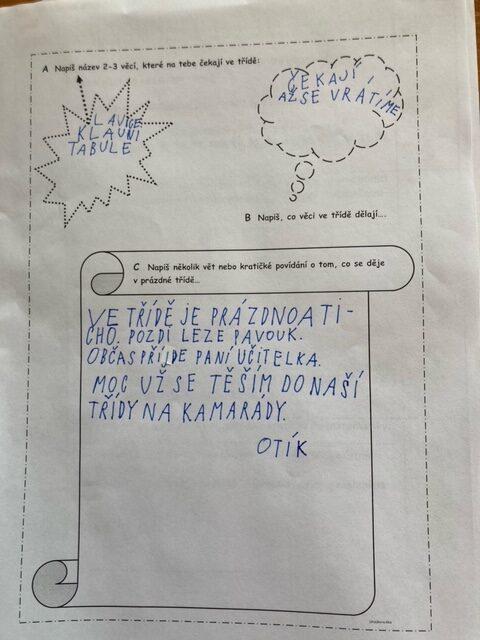 A Napiš název 2-3 věcí, které na tebe čekají ve třídě:
LAVICE
KLAUNI
TABULE
ČEKAJÍ
AŽ SE VRÁTÍME
B Napiš, co věci ve třídě dělají...
C Napiš několik vět nebo kratičké povídání o tom, co se děje
v prázdné třídě...
VE TŘÍDĚ JE PRÁZDNO A TI-
CHO. POZDI LEZE PAVOUK.
OBČAS PŘIJDE PANÍ UČITELKA.
MOC UŽ SE TĚŠÍM DO NAŠÍ
TŘÍDY NA KAMARÁDY.
OTÍK